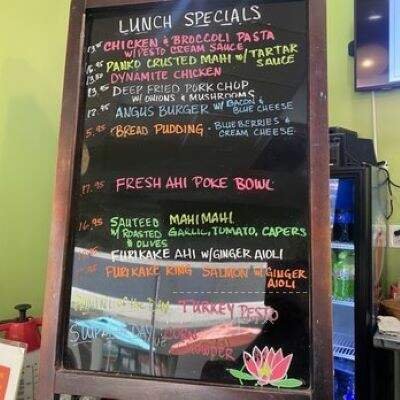 LUNCH SPECIALS
CHICKEN & BROCCOLI PASTA
W/PESTO CREAM SAUCE
PANKO CRUSTED MAHI W/ TARTAR
SAUCE
DYNAMITE CHICKEN
DEEP FRIED PORK CHOP
W/ ONIONS & MUSHROOMS
ANGUS BURGER W/ BACON &
BLUE CHEESE
5.95 BREAD PUDDING - BLUEBERRIES &
CREAM CHEESE
17.95 FRESH AHI POKE BOWL
16.95 SAUTEED MAHI MAHI
W/ ROASTED GARLIC, TOMATO, CAPERS
& OLIVES
FURIKAKE AHI W/GINGER AIOLI
FURIKAKE KING SALMON W/ GINGER
AIOLI
TURKEY PESTO
CHOWDER